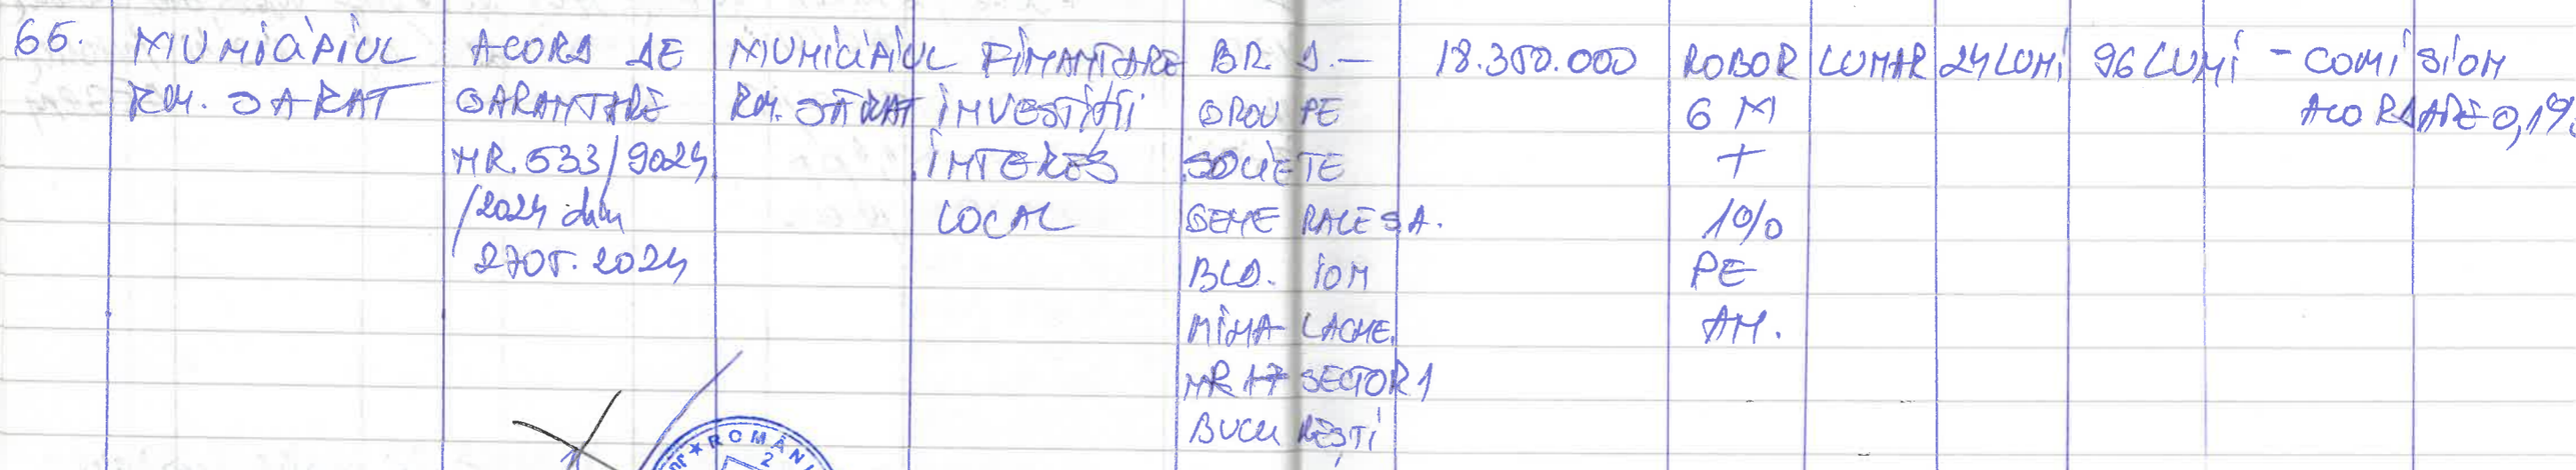 66.
MUNICIPIUL
RM. SARAT
ACORD DE
GARANTARE
NR. 533/9024
/2024 din
27 05. 2024
MUNICIPIUL
RM. SĂRAT
FINANTARE
INVESTIȚII
INTERES
LOCAL
BR. D.—
GROUPE
SOCIETE
GENERALE S.A.
BLD. ION
MIHALACHE
NR 17 SECTOR 1
BUCUREȘTI
18.350.000
ROBOR
6 M
+
1%
PE
AN.
LUNAR
24 LUNI
96 LUNI
- COMISION
ACORDARE 0,1%
ROMÂNI
2